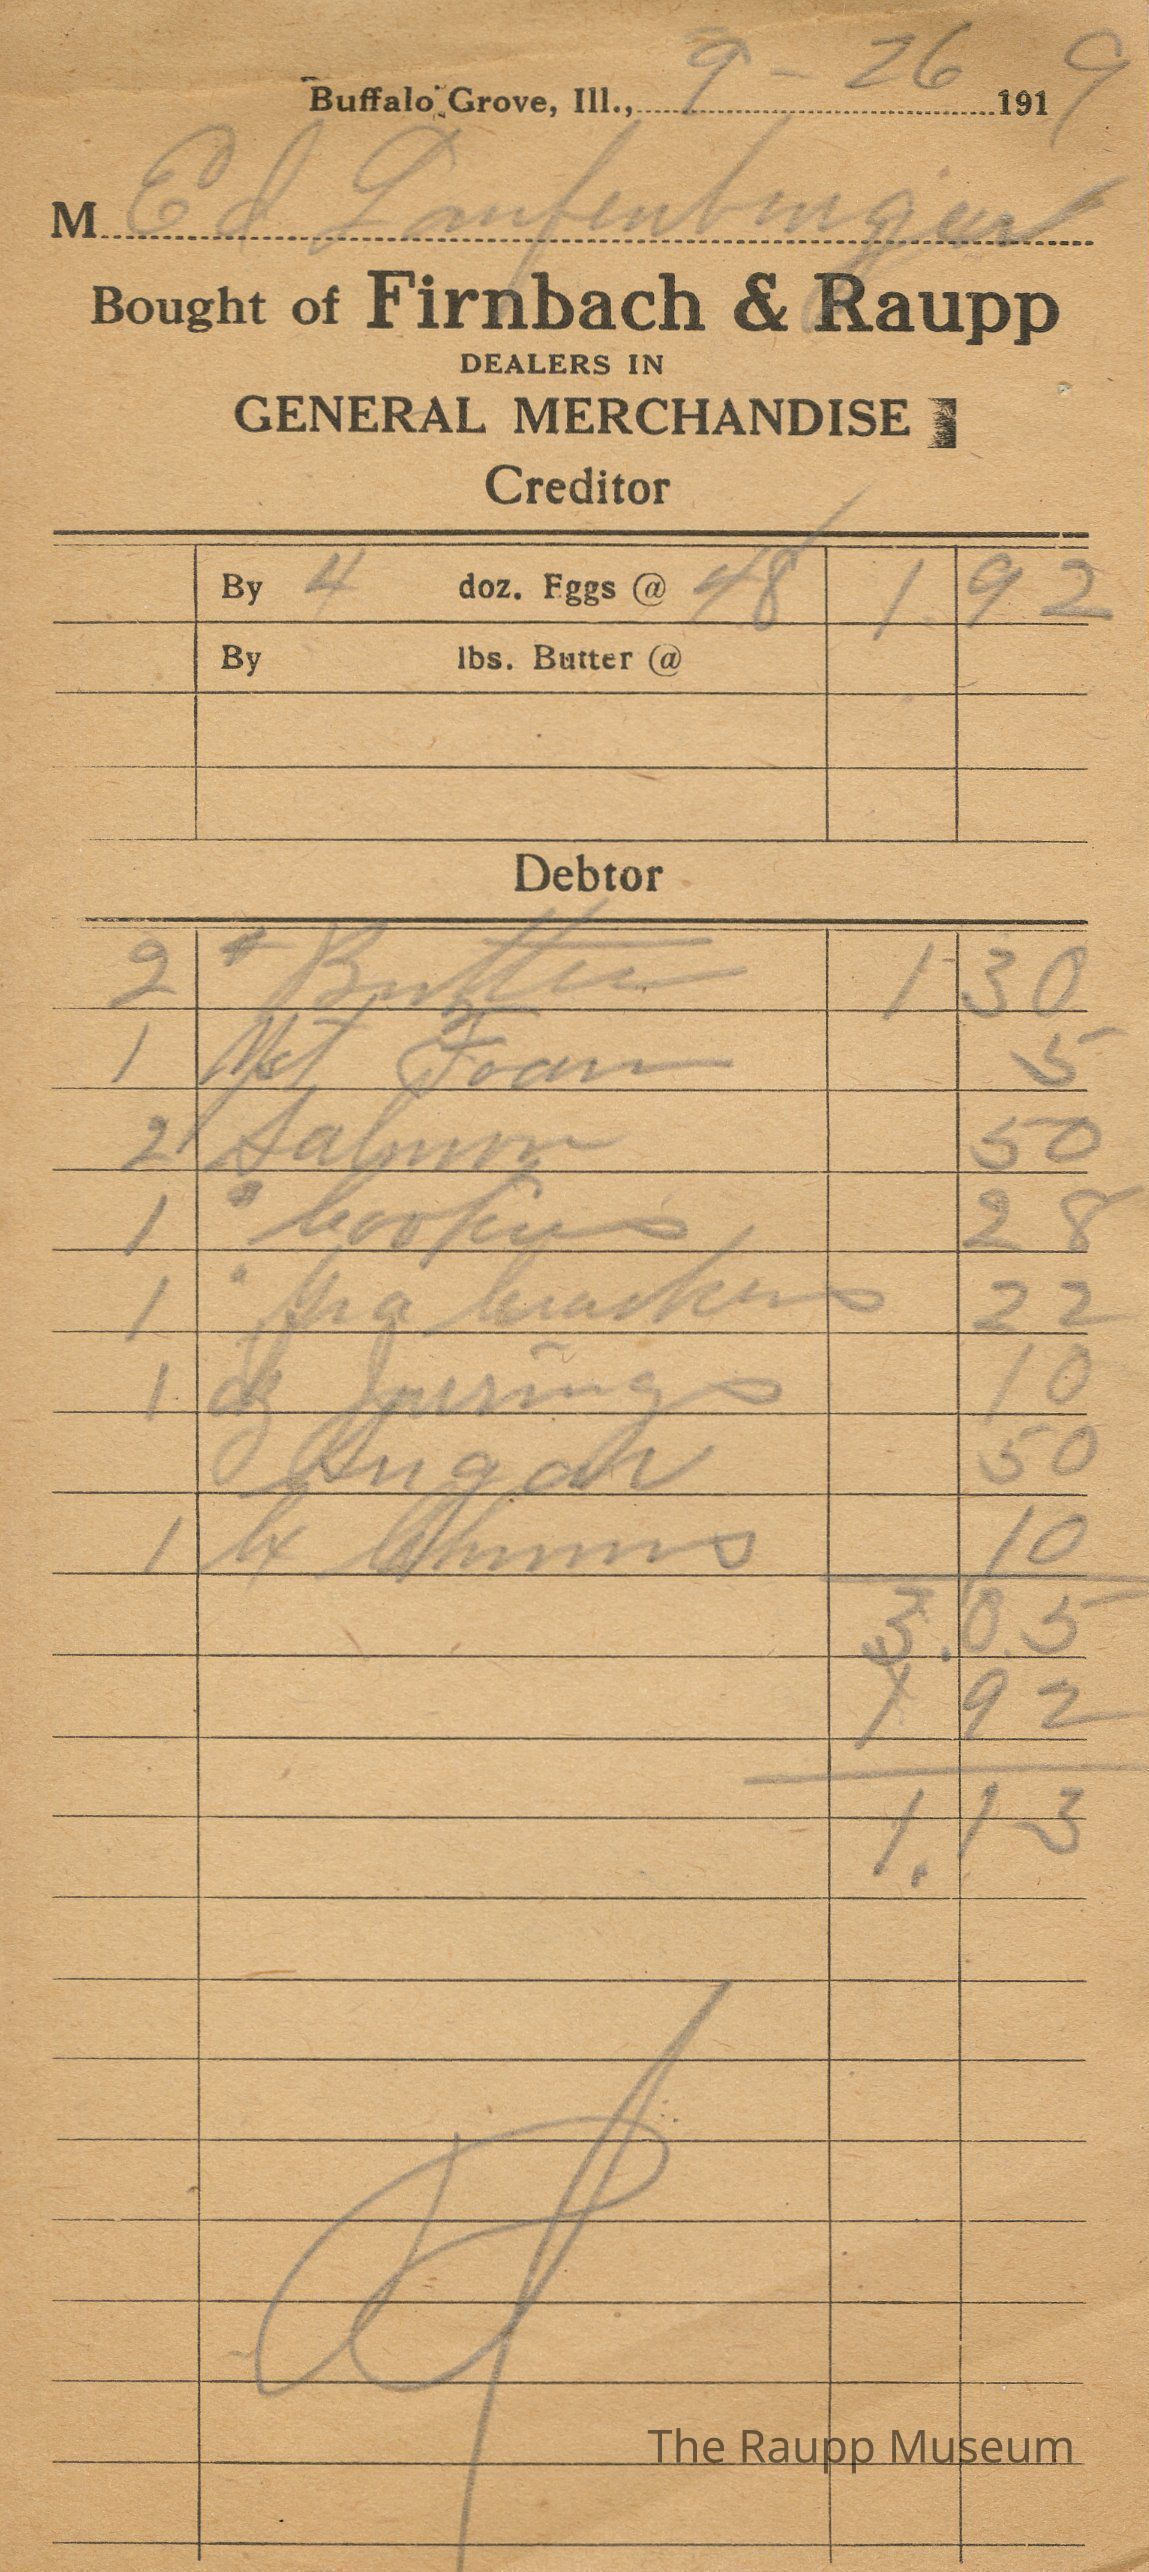 Buffalo Grove, Ill., 9 - 26 1919
M Ed
Bought of Firnbach & Raupp
DEALERS IN
GENERAL MERCHANDISE
Creditor
By 4 doz. Eggs @ 48 1.92
By lbs. Butter @
Debtor
2 # Butter 1 30
1 Yst Foam 5
2 Salmon 50
1 " Cookies 28
1 " Gra Crackers 22
1 dz 10
Sugar 50
1 10
3.05
1 92
1.13
The Raupp Museum